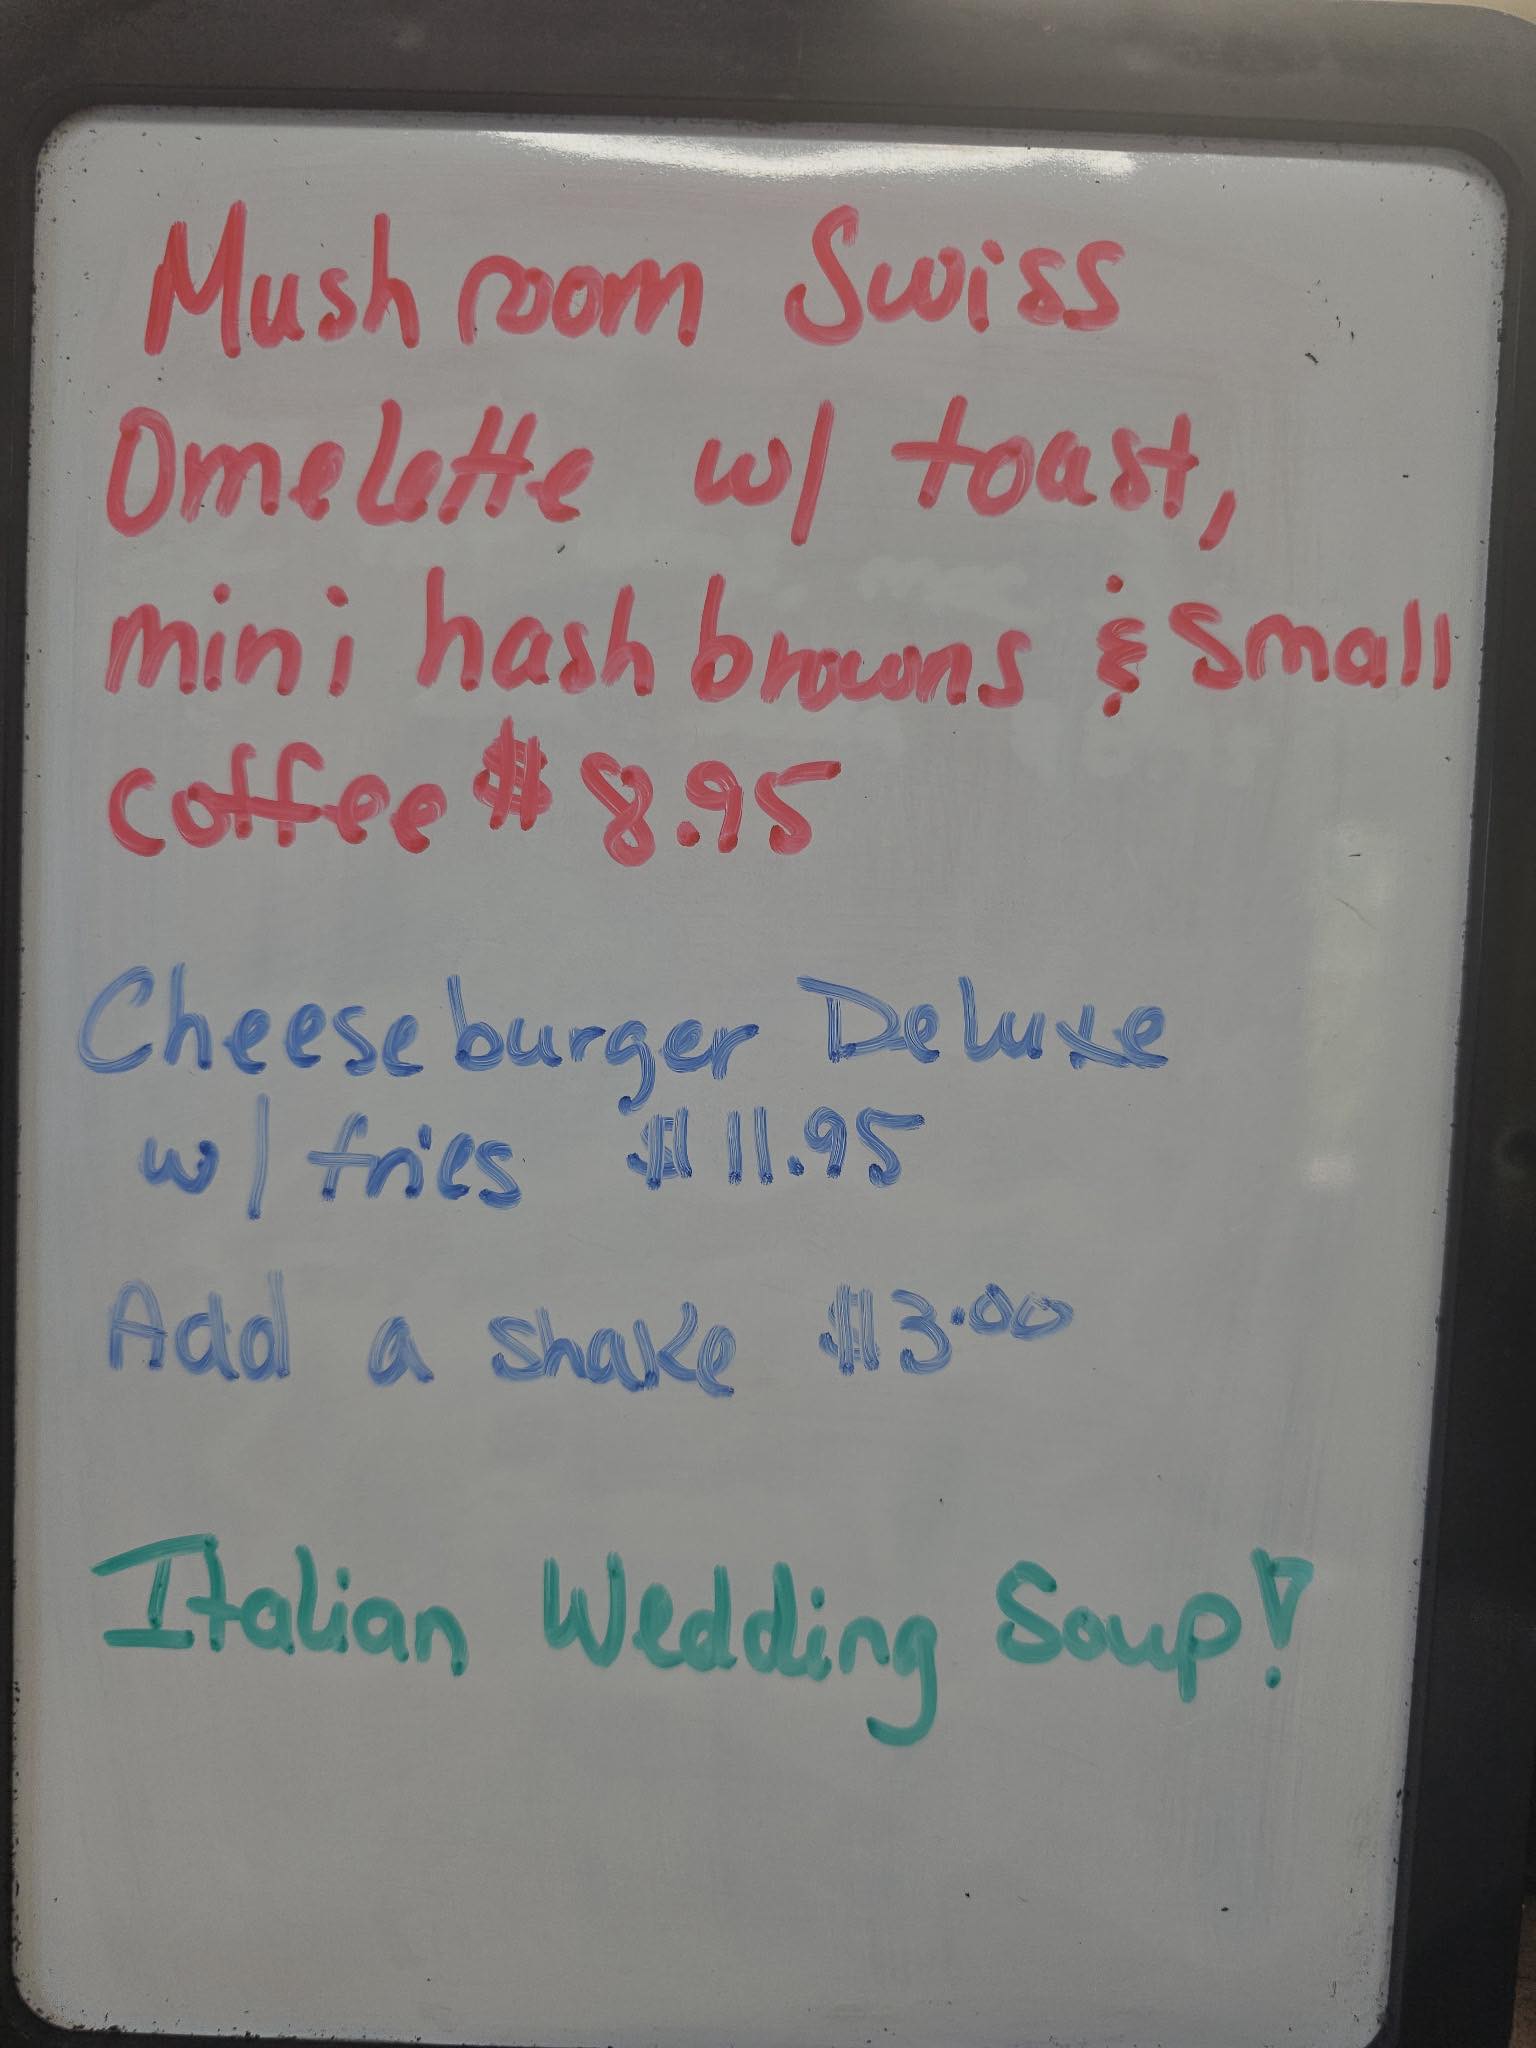 Mushroom Swiss
Omelette w/ toast,
mini hashbrowns & small
coffee $8.95
Cheeseburger Deluxe
w/ fries $11.95
Add a shake $3.00
Italian Wedding Soup!